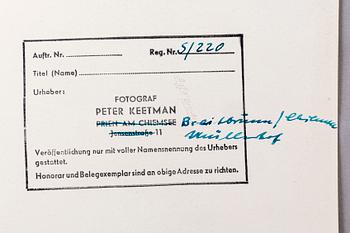 Auftr. Nr. Reg. Nr. S/220
Titel (Name)
Urheber:
FOTOGRAF
PETER KEETMAN
PRIEN AM CHIEMSEE
Jensenstraße 11
Breitbrunn/Chiemsee
Müllerhof
Veröffentlichung nur mit voller Namensnennung des Urhebers
gestattet.
Honorar und Belegexemplar sind an obige Adresse zu richten.